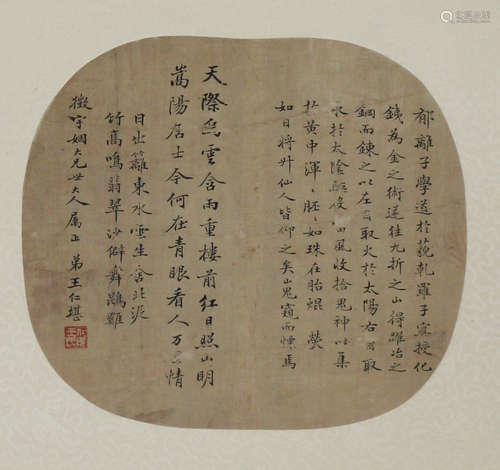 郁離子學道於藐乾羅子冥授化
鐵為金之術遂往九折之山得躍冶之
鋼而鍊之以左 取火於太陽右 取
水於太陰 風收拾鬼神以集
於黃中渾〻胚〻如珠在胎焜 熒
如日將升仙人皆仰之矣山鬼窺而慄焉
天際烏雲含雨重樓前紅日照山明
嵩陽居士今何在青眼看人万里情
日出籬東水 生舍北泥
竹高鳴翡翠沙僻舞鵾雞
徵宇姻大兄世大人属正 弟王仁堪